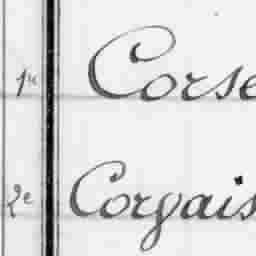 1re Corse
2e Corgais